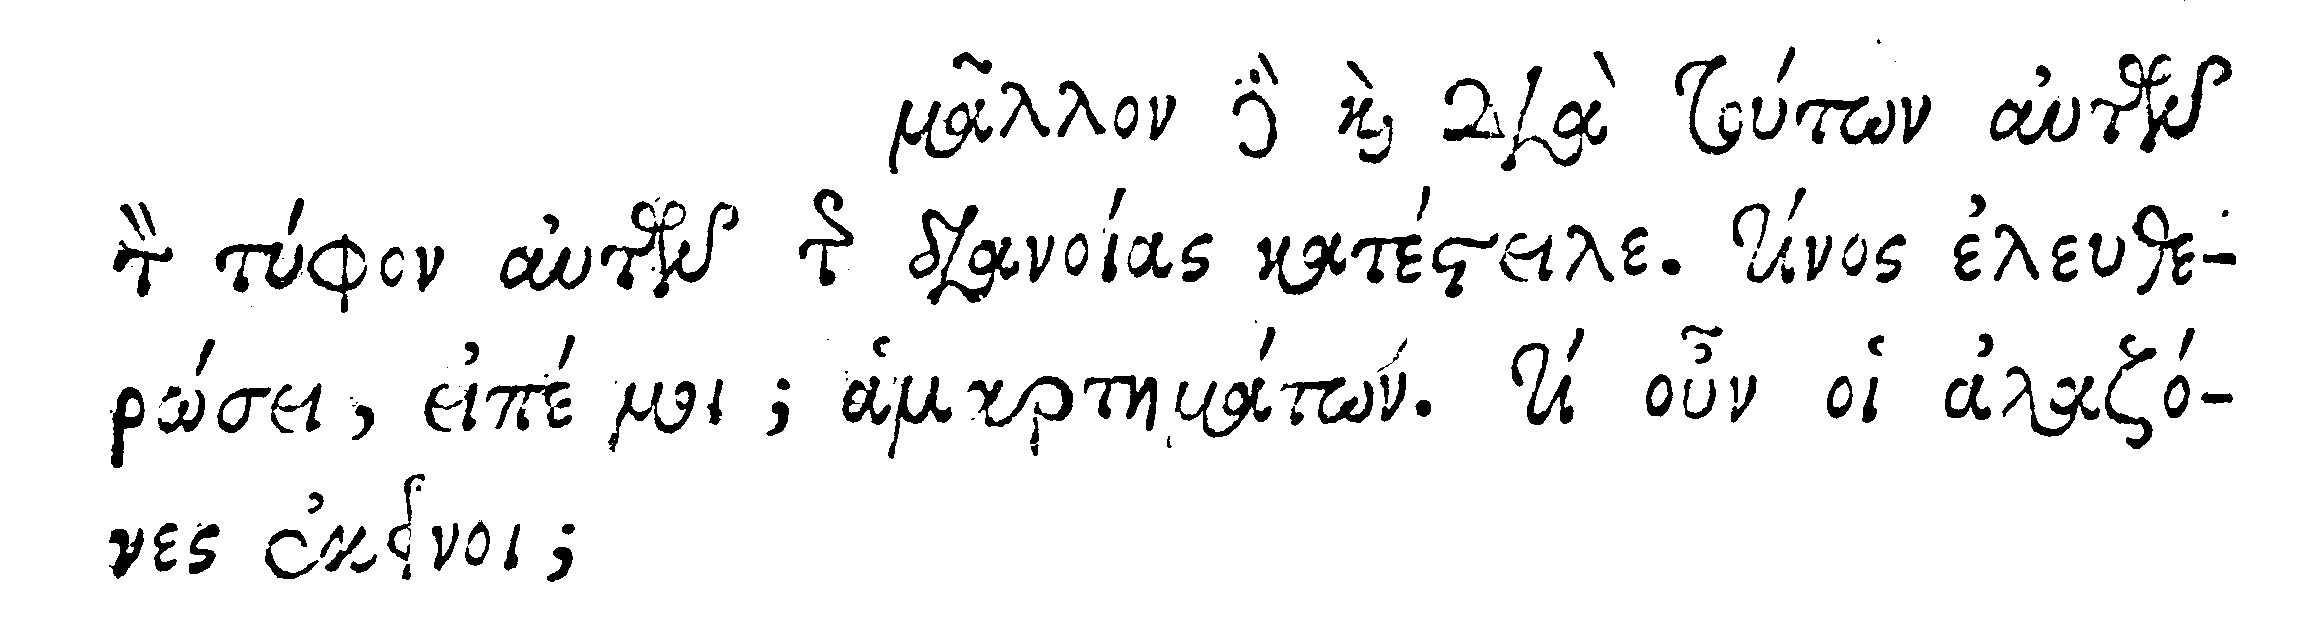 μᾶλλον δὲ καὶ διὰ τούτων αὐτῶν
τὸν τύφον αὐτῶν τῆς διανοίας κατέστειλε. Τίνος ἐλευθε-
ρώσει, εἰπέ μοι; ἁμαρτημάτων. Τί οὖν οἱ ἀλαζό-
νες ἐκεῖνοι;